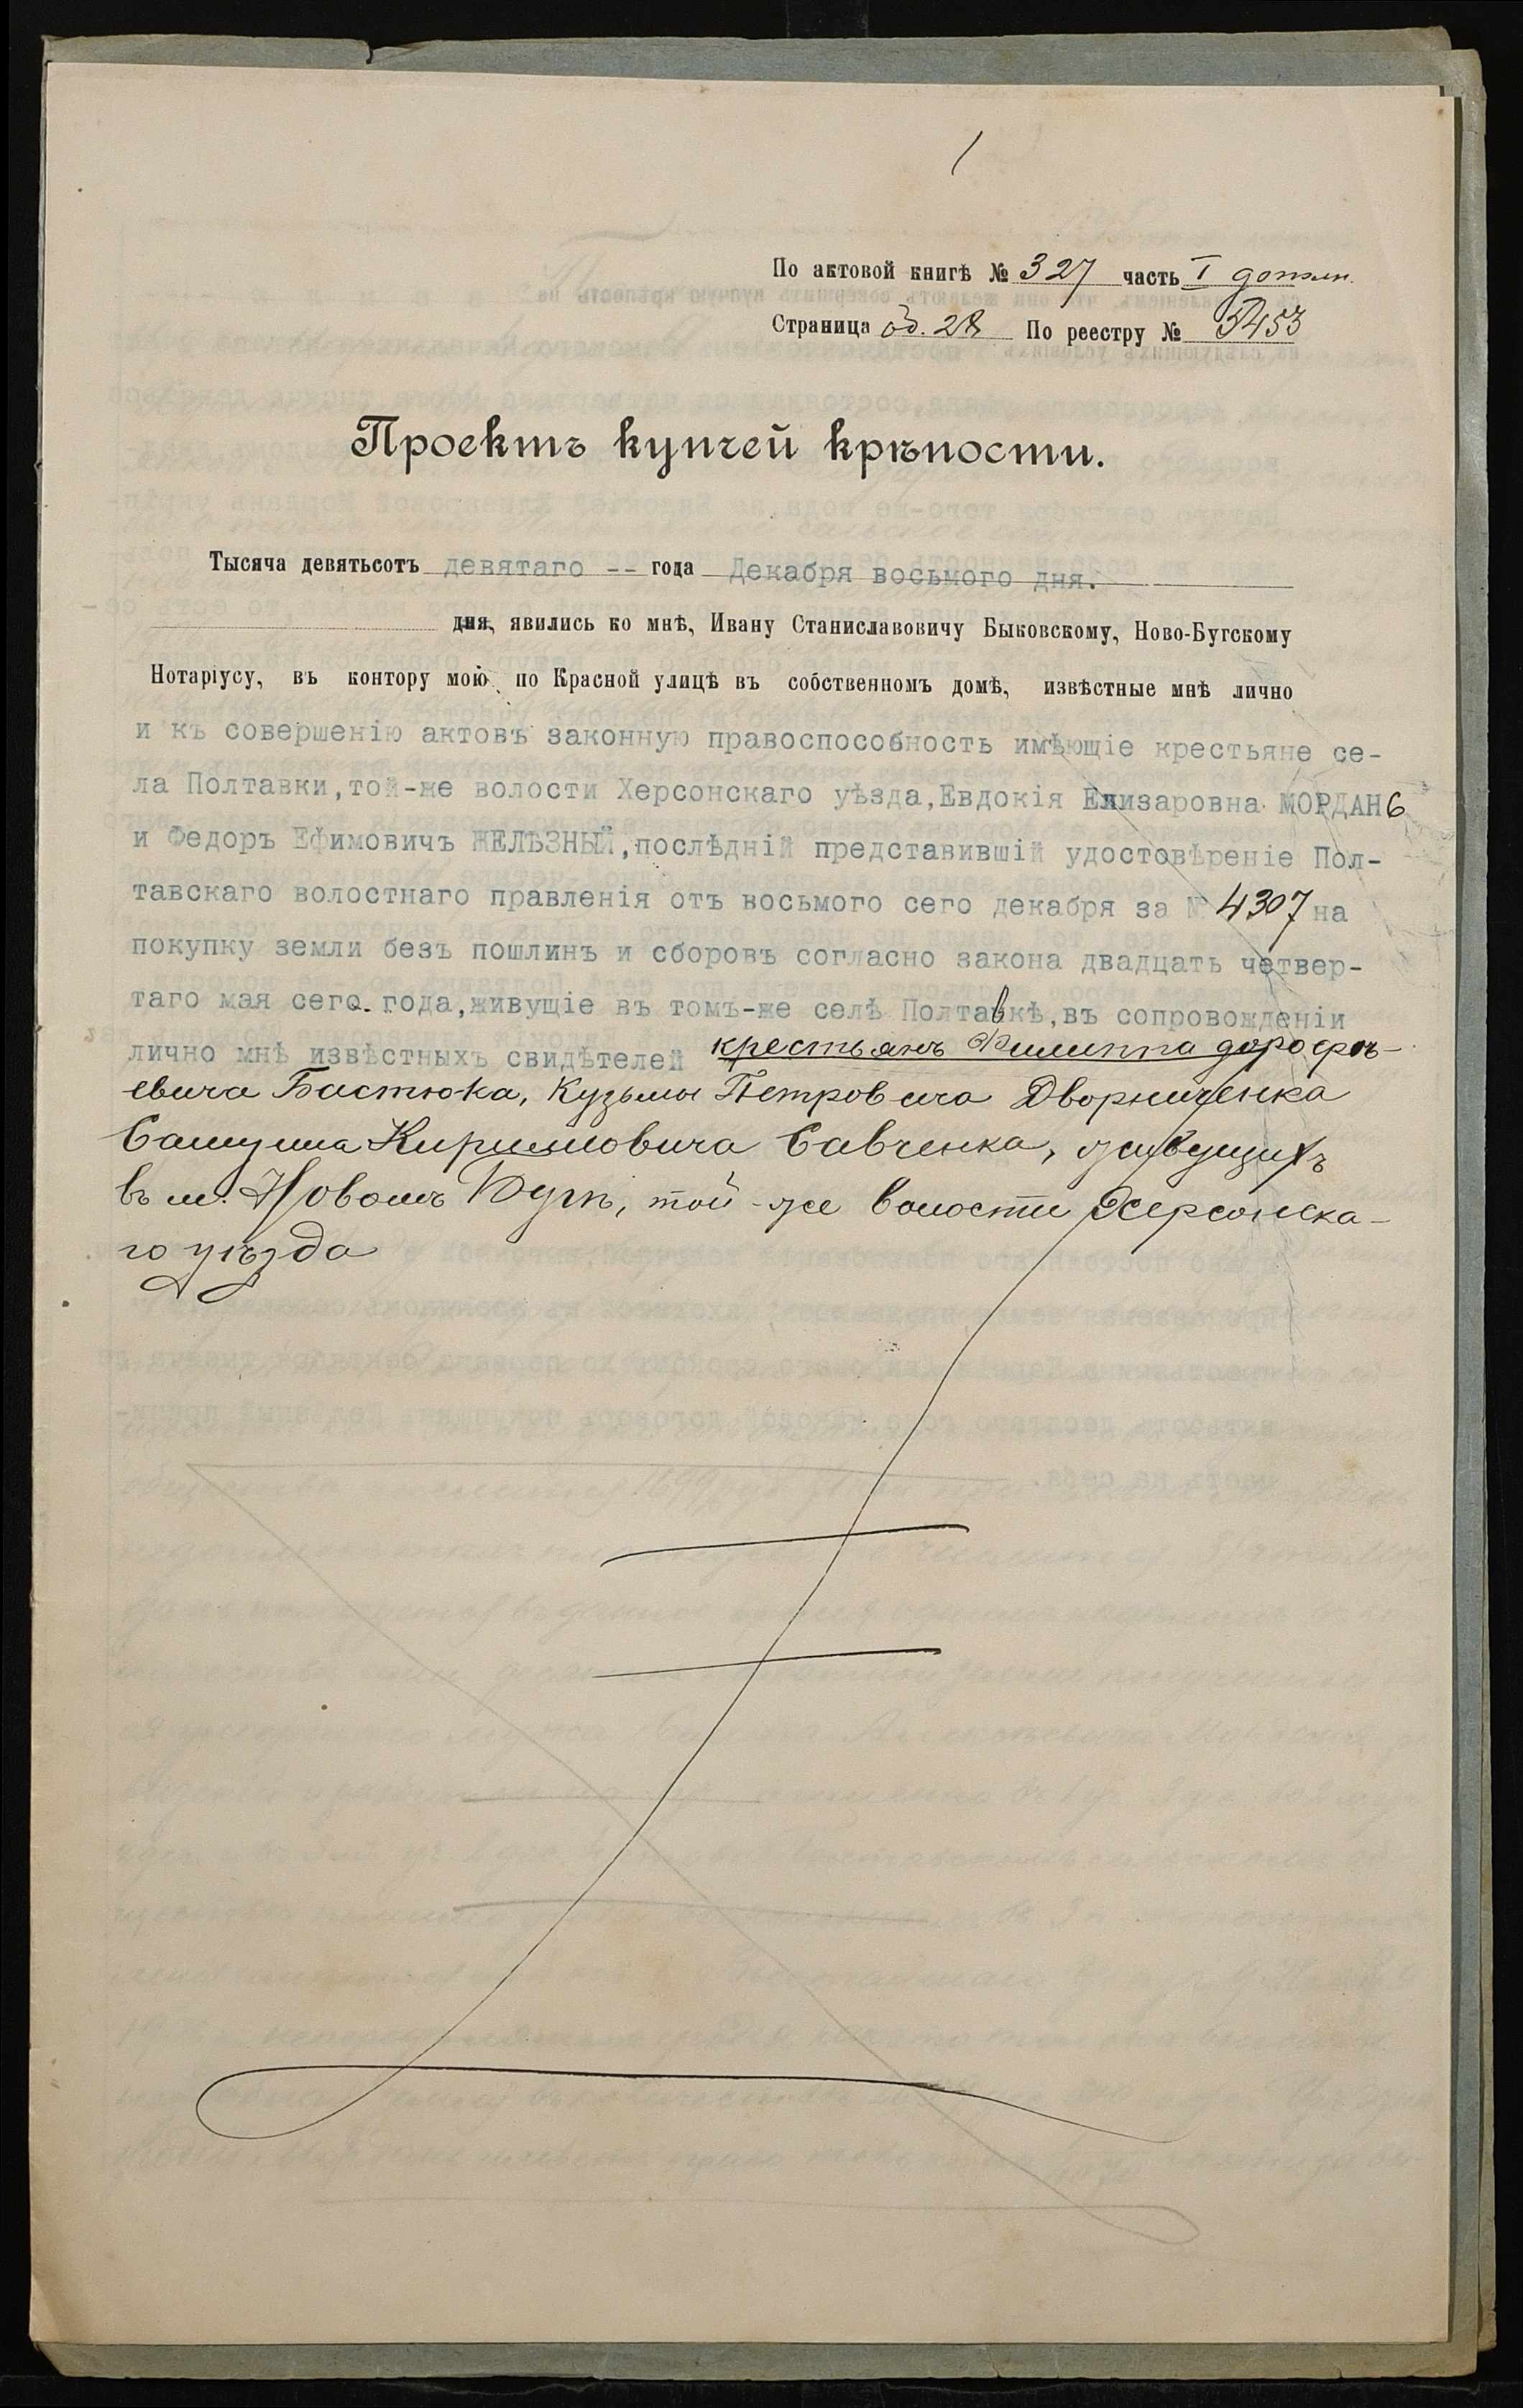 1
По актовой книгѣ № 327 часть I дополн.
Страница об. 28 По реестру № 5453
Проектъ купчей крѣпости.
Тысяча девятьсотъ девятаго -- года Декабря восьмого дня.
дня, явились ко мнѣ, Ивану Станиславовичу Быковскому, Ново-Бугскому
Нотаріусу, въ контору мою по Красной улицѣ въ собственномъ домѣ, извѣстные мнѣ лично
и къ совершенію актовъ законную правоспособность имѣющіе крестьяне се-
ла Полтавки, той-же волости Херсонскаго уѣзда, Евдокія Елизаровна МОРДАНЬ
и Федоръ Ефимовичъ ЖЕЛѢЗНЫЙ, послѣдній представившій удостовѣреніе Пол-
тавскаго волостнаго правленія отъ восьмого сего декабря за № 4307 на
покупку земли безъ пошлинъ и сборовъ согласно закона двадцать четвер-
таго мая сего года, живущіе въ томъ-же селѣ Полтавкѣ, въ сопровожденіи
лично мнѣ извѣстныхъ свидѣтелей крестьянъ Филиппа Дорофѣ-
евича Бастюка, Кузьмы Петровича Дворниченка
Самуила Кирилловича Савченка, живущихъ
въ м. Новомъ Бугѣ, той-же волости Херсонска-
го уѣзда